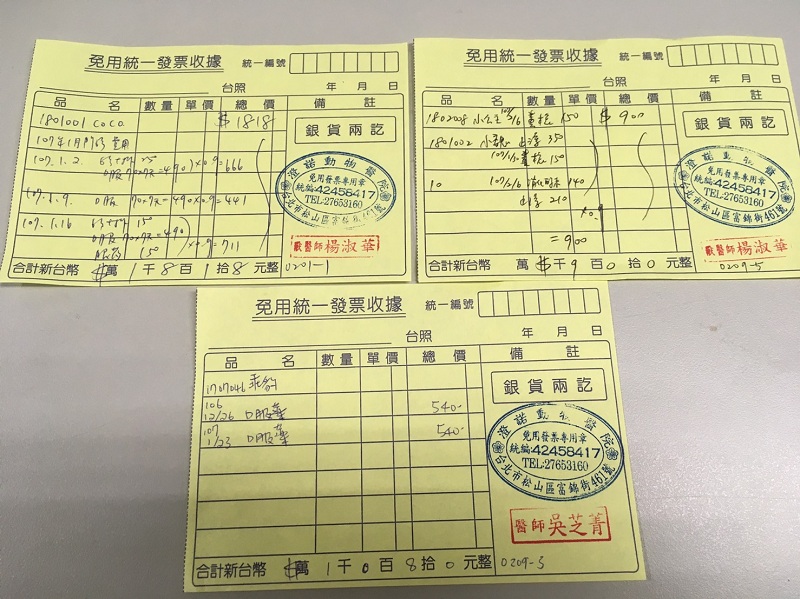 免用統一發票收據 統一編號
台照 年 月 日
品 名 數量 單價 總 價 備 註
1801001 COCO $1818
107年1月門診費用
銀貨兩訖
107.1.2.
口服90x7天=490 )x0.9=666
107.1.9. 口服 90x7天=490x0.9=441
107.1.16 150
口服90x7天=490 )x0.9=711
150
澄諾動物醫院
免用發票專用章
統編:42458417
TEL:27653160
台北市松山區富錦街461號
獸醫師 楊淑華
合計新台幣 $萬 1千8百1拾8元整 0201-1
免用統一發票收據 統一編號
台照 年 月 日
品 名 數量 單價 總 價 備 註
1802008 150 $900
銀貨兩訖
1801002 350
150
10 107/2/6 140
210
x0.9
=900
澄諾動物醫院
免用發票專用章
統編:42458417
TEL:27653160
台北市松山區富錦街461號
獸醫師 楊淑華
合計新台幣 萬 $千9百0拾0元整 0209-5
免用統一發票收據 統一編號
台照 年 月 日
品 名 數量 單價 總 價 備 註
1707046
銀貨兩訖
106
12/26 口服藥 540-
107
1/23 口服藥 540-
澄諾動物醫院
免用發票專用章
統編:42458417
TEL:27653160
台北市松山區富錦街461號
醫師 吳芝菁
合計新台幣 $萬 1千0百8拾0元整 0209-5